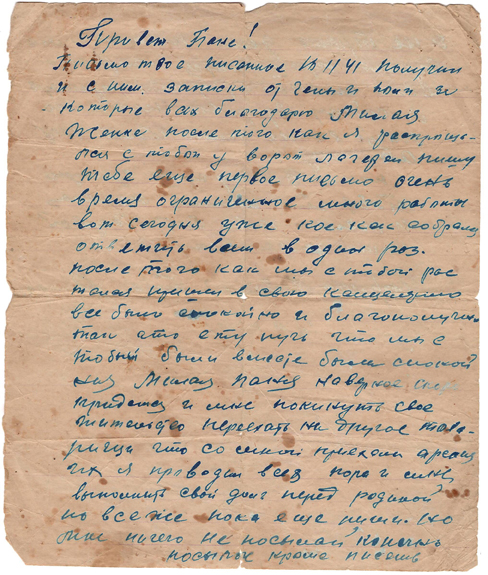 Привет Паня!
Письмо твое писанное 18 11 41 получил
и с ним записки от Гены и Коли за
которые вас благодарю Милая
Женка после того как я распроща-
лся с тобой у ворот лагерей пишу
тебе еще первое письмо очень
время ограниченное много работы
вот сегодня уже кое как собрался
ответить всем в один роз.
после того как мы с тобой рас
тались пришли в свою
все было спокойно и благополучно
так ато эту ночь что мы с
тобый были вместе была спокой
ная Милая Паня наверное
придется и мне покинуть свое
жительство переехать на другое това-
рищи что со мной приехали
их я проводил всех пора и мне
выполнить свой долг перед родиной
но все же пока еще пиши. Но
мне ничего не посылай конечно
посылок кроме писемь